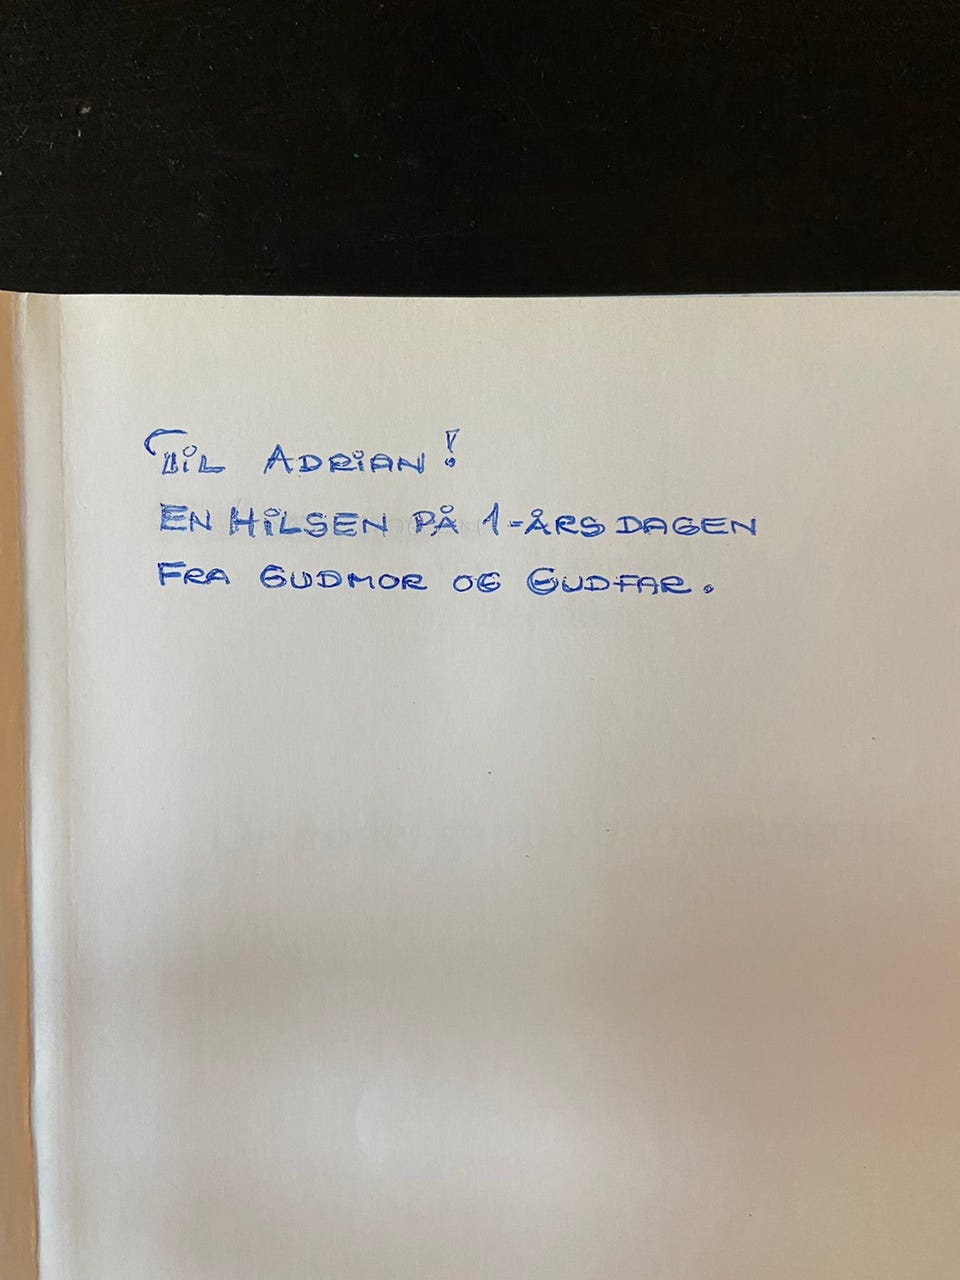 TIL ADRIAN!
EN HILSEN PÅ 1-ÅRSDAGEN
FRA GUDMOR OG GUDFAR.